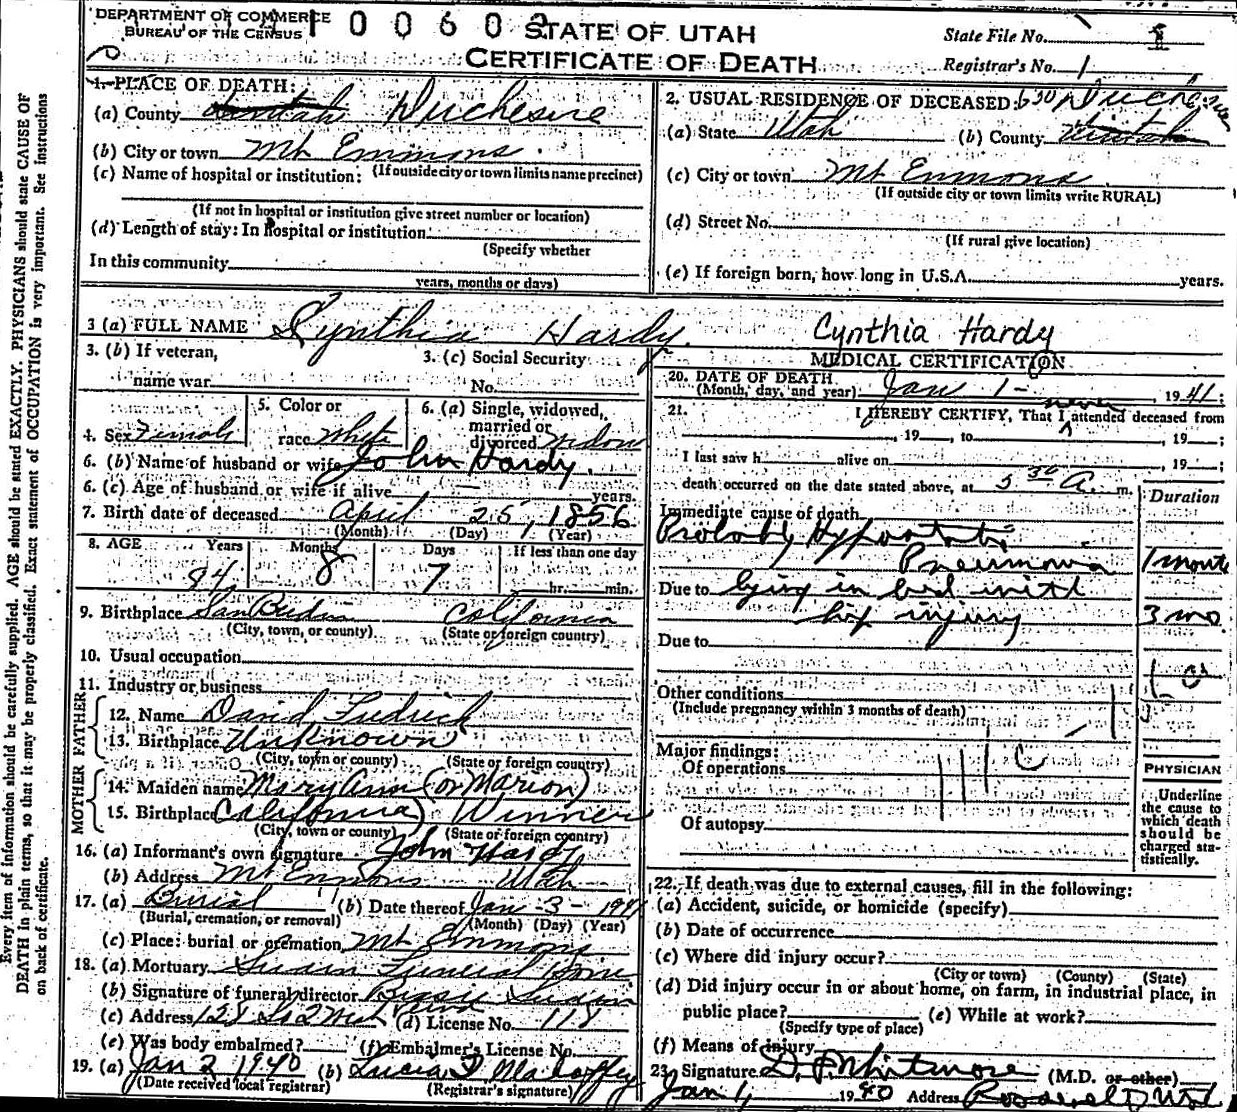 DEPARTMENT OF COMMERCE
BUREAU OF THE CENSUS
1 0 0 6 0 2
STATE OF UTAH
CERTIFICATE OF DEATH
State File No. 1
Registrar's No. 1
1. PLACE OF DEATH:
(a) County Uintah Duchesne
(b) City or town Mt Emmons.
(If outside city or town limits name precinct)
(c) Name of hospital or institution:
(If not in hospital or institution give street number or location)
(d) Length of stay: In hospital or institution
(Specify whether
In this community
years, months or days)
2. USUAL RESIDENCE OF DECEASED: Duchesne
(a) State Utah (b) County Uintah
(c) City or town Mt Emmons
(If outside city or town limits write RURAL)
(d) Street No.
(If rural give location)
(e) If foreign born, how long in U.S.A. years.
3 (a) FULL NAME Synthia Hardy. Cynthia Hardy
3. (b) If veteran,
name war
3. (c) Social Security
No.
4. Sex Female
5. Color or
race White
6. (a) Single, widowed,
married or
divorced Widow
6. (b) Name of husband or wife John Hardy.
6. (c) Age of husband or wife if alive — years.
7. Birth date of deceased April 25, 1856
(Month) (Day) (Year)
8. AGE Years Months Days If less than one day
84 8 7 hr. min.
9. Birthplace San Berdino California
(City, town, or county) (State or foreign country)
10. Usual occupation
11. Industry or business
FATHER
12. Name David Fredrick
13. Birthplace Unknown
(City, town or county) (State or foreign country)
MOTHER
14. Maiden name Mary Ann (or Marion)
15. Birthplace California) Winner
(City, town or county) (State or foreign country)
16. (a) Informant's own signature John Hardy
(b) Address Mt Emmons Utah
17. (a) Burial (b) Date thereof Jan - 3 - 1941
(Burial, cremation, or removal) (Month) (Day) (Year)
(c) Place: burial or cremation Mt Emmons
18. (a) Mortuary Swain Funeral Home
(b) Signature of funeral director Swain
(c) Address 128 So 2 West (d) License No. 118
(e) Was body embalmed? (f) Embalmer's License No.
19. (a) Jan 2 1940 (b)
(Date received local registrar) (Registrar's signature)
MEDICAL CERTIFICATION
20. DATE OF DEATH
(Month, day, and year) Jan 1 - , 19 41;
21. I HEREBY CERTIFY, That I never attended deceased from
, 19 , to , 19 ;
I last saw h alive on , 19 ;
death occurred on the date stated above, at 5 30 A. m.
Duration
Immediate cause of death
Probably Hypostatic
Pneumonia 1 month
Due to lying in bed with
hip injury 3 mo.
Due to
Other conditions
(Include pregnancy within 3 months of death)
Major findings:
Of operations
Of autopsy
PHYSICIAN
Underline
the cause to
which death
should be
charged sta-
tistically.
22. If death was due to external causes, fill in the following:
(a) Accident, suicide, or homicide (specify)
(b) Date of occurrence
(c) Where did injury occur?
(City or town) (County) (State)
(d) Did injury occur in or about home, on farm, in industrial place, in
public place? (e) While at work?
(Specify type of place)
(f) Means of injury
23. Signature D. P. Whitmore (M.D. or other)
Jan 1, 1940 Address Roosevelt Utah
Every item of information should be carefully supplied. AGE should be stated EXACTLY. PHYSICIANS should state CAUSE OF
DEATH in plain terms, so that it may be properly classified. Exact statement of OCCUPATION is very important. See instructions
on back of certificate.